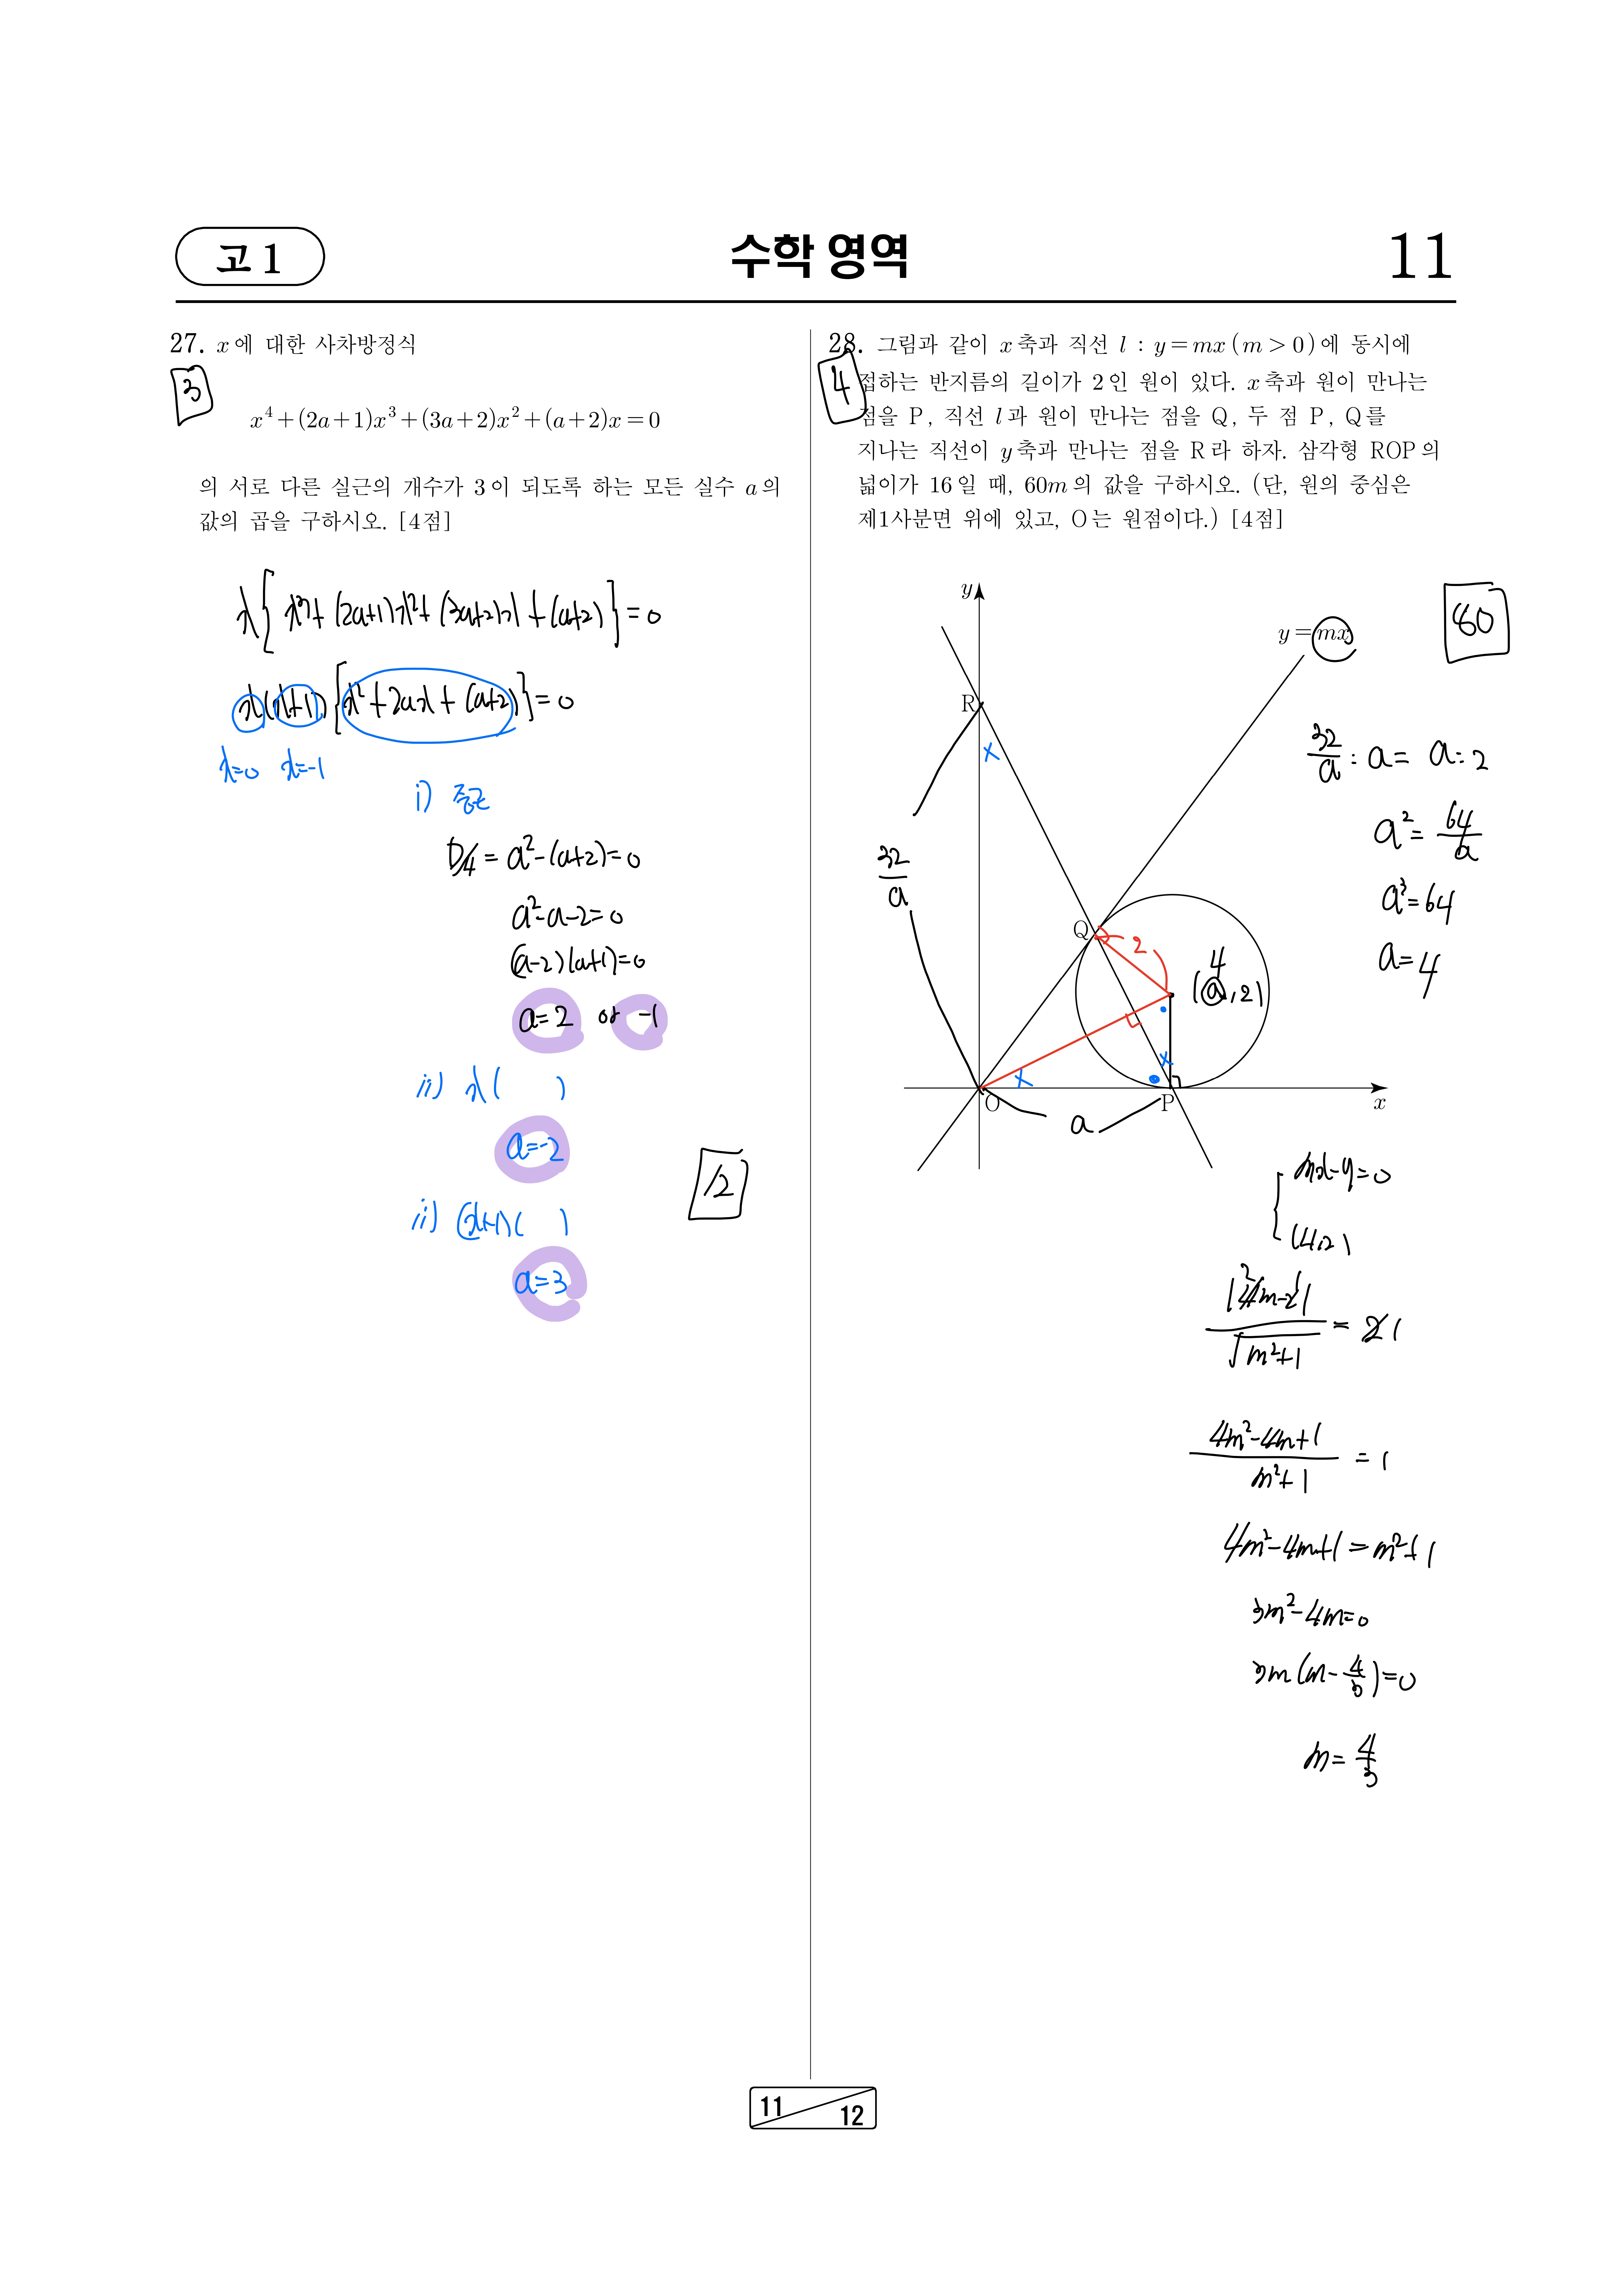 고 1
수학 영역
11
27. x에 대한 사차방정식
3
x⁴+(2a+1)x³+(3a+2)x²+(a+2)x=0
의 서로 다른 실근의 개수가 3이 되도록 하는 모든 실수 a의
값의 곱을 구하시오. [4점]
x{x³+(2a+1)x²+(3a+2)x+(a+2)}=0
x(x+1){x²+2ax+(a+2)}=0
x=0 x=-1
i) 중근
D/4=a²-(a+2)=0
a²-a-2=0
(a-2)(a+1)=0
a=2 or -1
ii) x( )
a=-2
ii) (x+1)( )
a=3
12
28. 그림과 같이 x축과 직선 l : y=mx (m>0)에 동시에
4
접하는 반지름의 길이가 2인 원이 있다. x축과 원이 만나는
점을 P, 직선 l과 원이 만나는 점을 Q, 두 점 P, Q를
지나는 직선이 y축과 만나는 점을 R라 하자. 삼각형 ROP의
넓이가 16일 때, 60m의 값을 구하시오. (단, 원의 중심은
제1사분면 위에 있고, O는 원점이다.) [4점]
80
y
y=mx
R
x
32/a
Q
2
4
(a, 2)
x
x
O
P
x
a
32/a : a = a : 2
a²=64/a
a³=64
a=4
mx-y=0
(4,2)
|4m-2|/√m²+1 = 2 1
2
4m²-4m+1/m²+1 = 1
4m²-4m+1=m²+1
3m²-4m=0
3m(m-4/3)=0
m=4/3
11
12